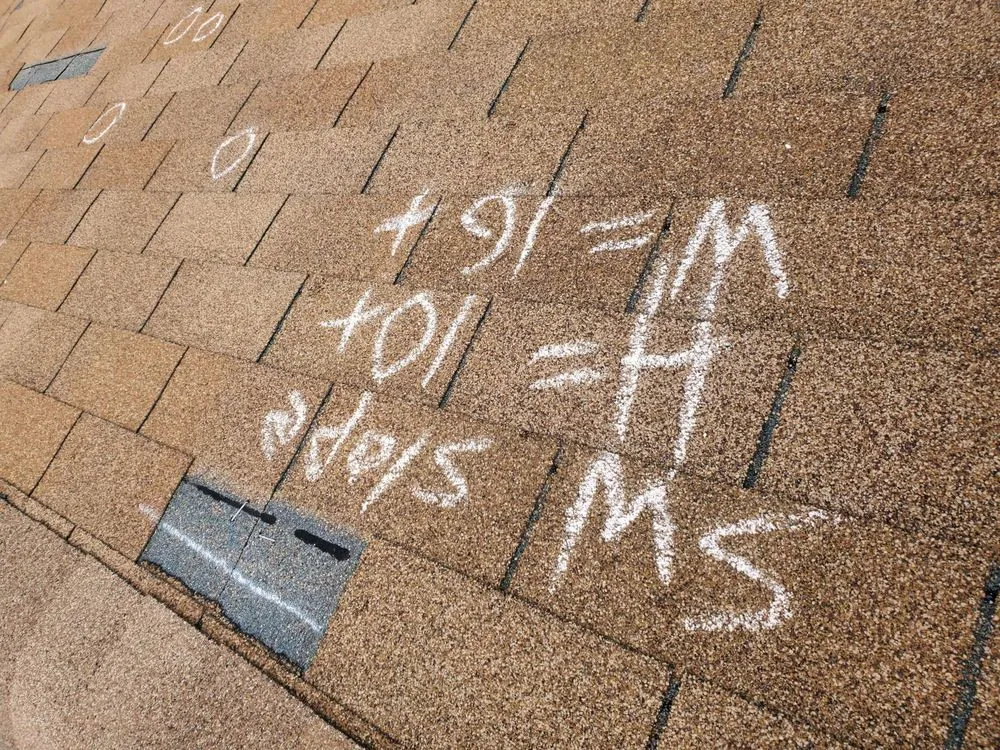 SW Slope
H = 10+
W = 16+